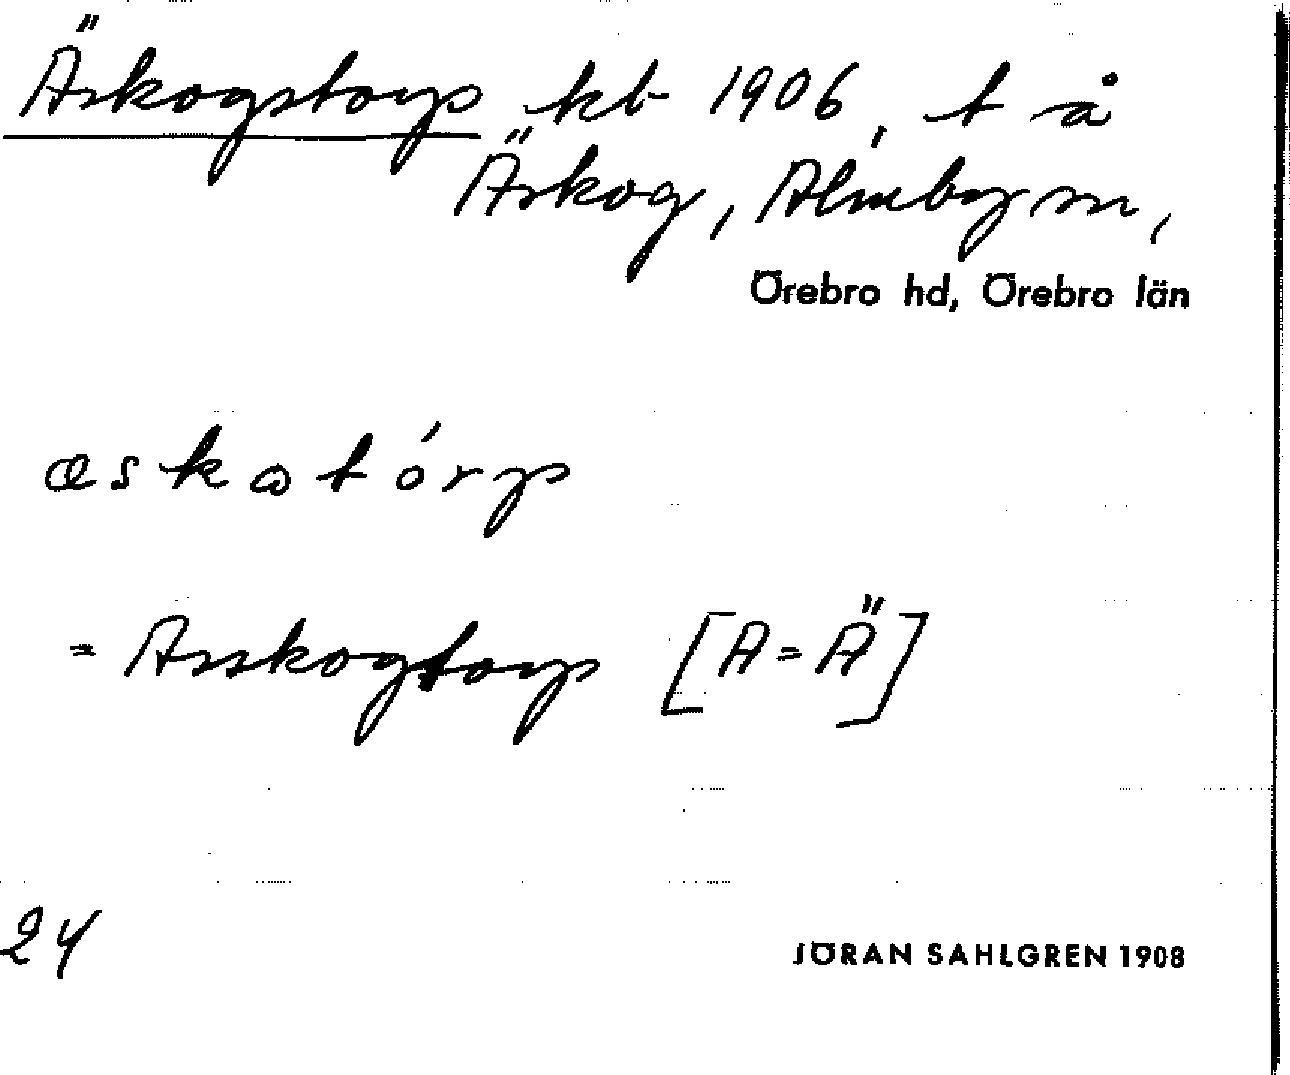 Äskogstorp kb 1906, t å
Äskog, Almby sn,
Örebro hd, Örebro län
æskatórp
= Asskogtorp [A = Ä]
24
JÖRAN SAHLGREN 1908